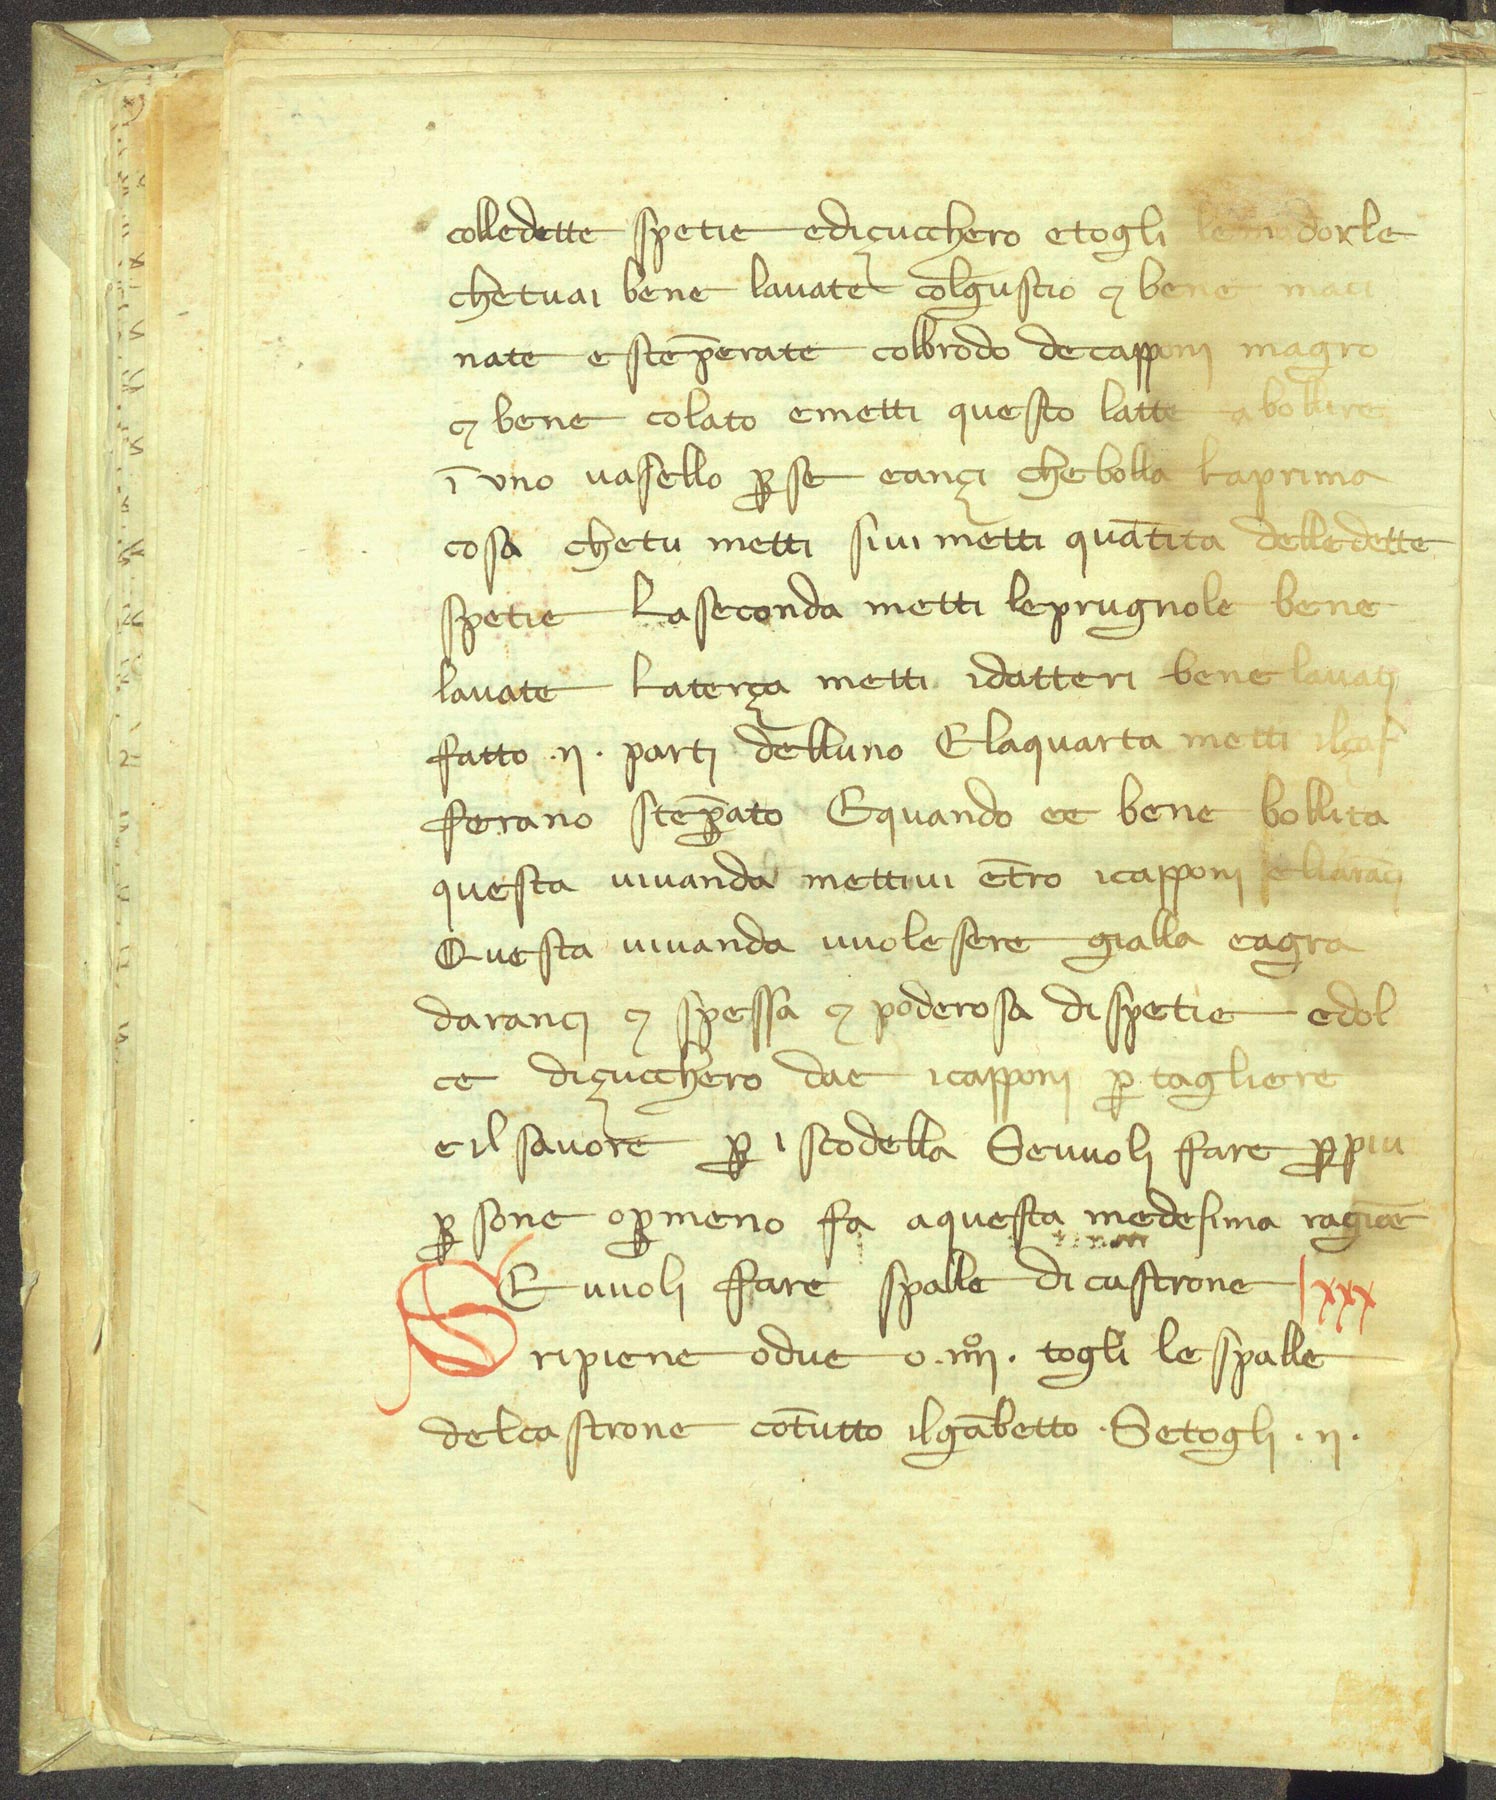 colledette spetie ediçucchero etogli le madorle
chetuai bene lauate colguscio ⁊ bene maci
nate e stēperate colbrodo decapponi magro
⁊ bene colato emetti questo latte a bollire
ī uno uasello ꝑ se eançi chebolla laprima
cosa chetu metti siui metti quātita delledette
spetie Laseconda metti leprugnole bene
lauate Laterça metti idatteri bene lauati
fatto .ij. parti delluno Elaquarta metti ilçaf
ferano stēꝑato Equando ee bene bollita
questa uiuanda mettiui ētro icapponi eliarāci
Questa uiuanda uuolesere gialla eagra
daranci ⁊ spessa ⁊ poderosa dispetie edol
ce diçucchero dae icapponi ꝑ tagliere
eil sauore ꝑ iscodella Seuuoli fare ꝑ piu
ꝑsone oꝑmeno fa aquesta medesima ragiōe
SE uuoli fare spalle dicastrone lxxx
ripiene odue o .iiij. togli lespalle
delcastrone cōtutto ilgābetto. Setogli .ij.